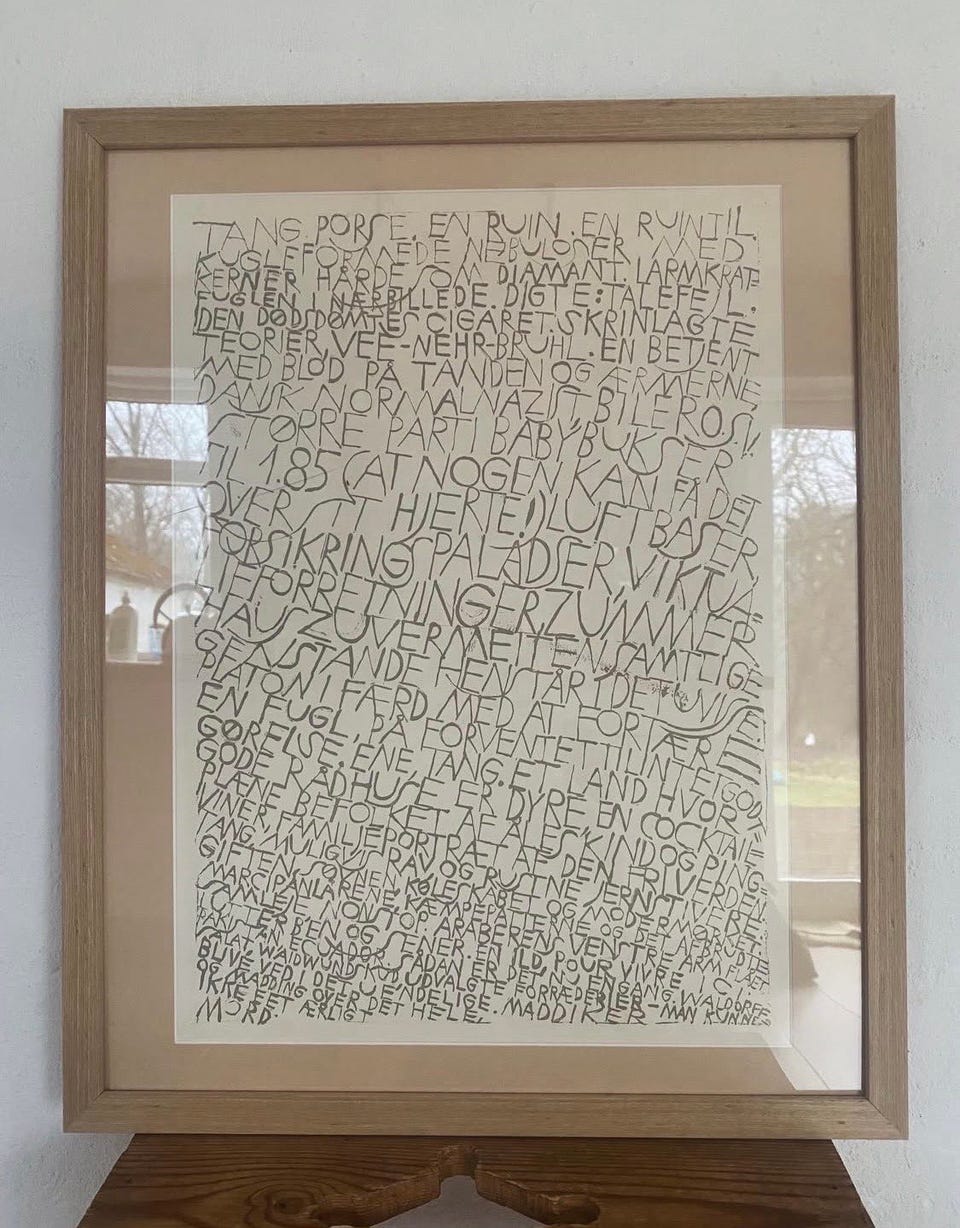 TANG. PORSE. EN RUIN. EN RUIN TIL.
KUGLEFORMEDE NEBULOSER MED
KERNER HÅRDE SOM DIAMANT. LARMKRAT
FUGLEN I NÆRBILLEDE. DIGTE: TALEFEJL.
DEN DØDSDØMTES CIGARET. SKRINLAGTE
TEORIER VEE-NEHR-BRUHL. EN BETJENT
MED BLOD PÅ TANDEN OG ÆRMERNE
DANSK NORMALNAZIST BILEROS!!
STØRRE PARTI BABYBUKSER
TIL 1.85 (AT NOGEN KAN FÅ DET
OVER SIT HJERTE!) LUFTBASER
FORSIKRINGSPALADSER VIKTUA
LIEFORRETNINGER ZUMMER
HAUS ZU VERMEITEN SAMTLIGE
GENSTANDE HENSTÅR I DET UVISSE
PLATON I FÆRD MED AT FORTÆRE
EN FUGL PÅ FORVENTET TILINTETGØR
GØRELSE. ENE TANG. ET LAND HVOR
GODE RÅDHUSE ER DYRE EN COCKTAIL
PLÆNE BETO KET AF ÆLES KIND OG PING
VINER FAMILIEPORTRÆT AF DEN FRI VERDEN.
TANG. MULIGVIS RAV OG RUSTNE JERNSTIVERE.
GIFTEN KØLESKABET OG MODERMØRKET.
MARCIPANLARENE. KÆMPEPATTER OG
NONSTOP. ARABERENS VENSTRE ARM
LOTTERBEN OG SENER. EN ILD. POUR VIVRE ICI.
ECUADOR SÅDAN. ER DET NU ENGANG. WALDORFF
BLIVE VED I DET UENDELIGE. FORRÆDERIER-MAN KUNNE
OG RÆDDING OVER DET HELE. MADDIKER
IKKE ET ÆRLIGT
MORD.